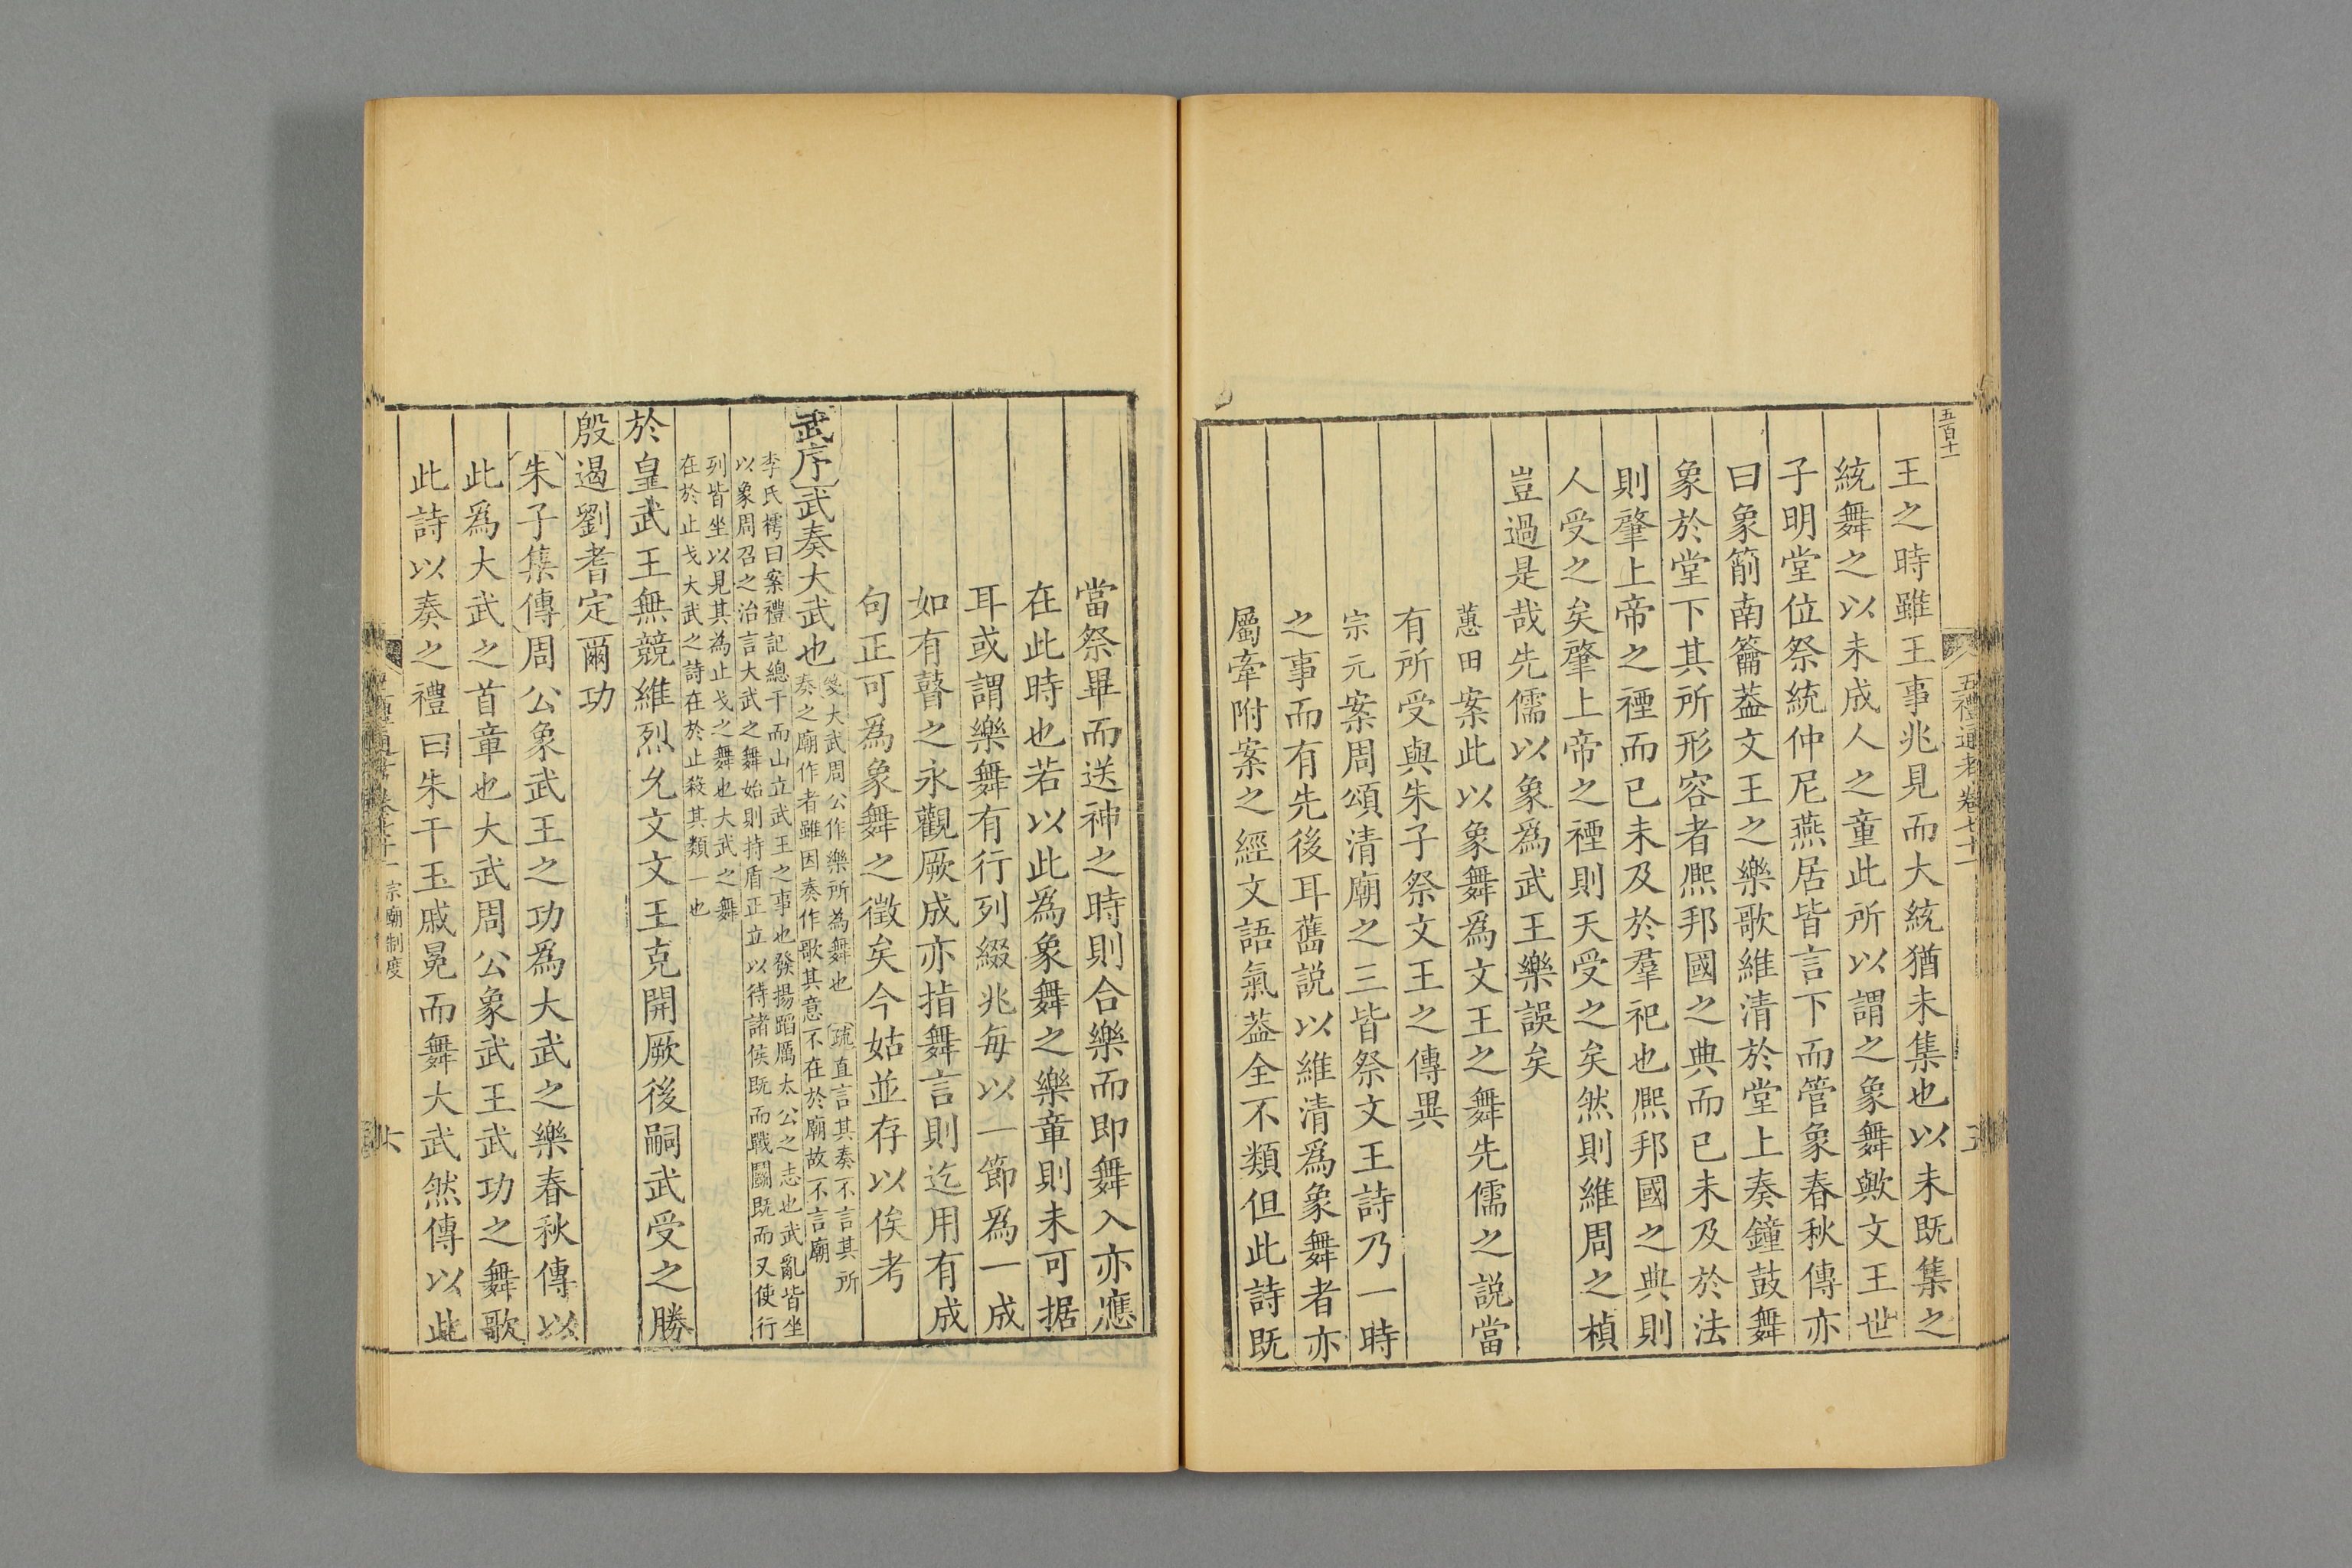 五百十一
五禮通考卷七十一
五
王之時雖王事兆見而大統猶未集也以未既集之
統舞之以未成人之童此所以謂之象舞歟文王世
子明堂位祭統仲尼燕居皆言下而管象春秋傳亦
曰象箾南籥葢文王之樂歌維清於堂上奏鐘鼓舞
象於堂下其所形容者熈邦國之典而已未及於法
則肇上帝之禋而已未及於羣祀也熈邦國之典則
人受之矣肇上帝之禋則天受之矣然則維周之楨
豈過是哉先儒以象爲武王樂誤矣
蕙田案此以象舞爲文王之舞先儒之説當
有所受與朱子祭文王之傳異
宗元案周頌清廟之三皆祭文王詩乃一時
之事而有先後耳舊説以維清爲象舞者亦
屬牽附案之經文語氣葢全不類但此詩既
當祭畢而送神之時則合樂而即舞入亦應
在此時也若以此爲象舞之樂章則未可据
耳或謂樂舞有行列綴兆每以一節爲一成
如有瞽之永觀厥成亦指舞言則迄用有成
句正可爲象舞之徵矣今姑並存以俟考
武序武奏大武也箋大武周公作樂所為舞也 疏直言其奏不言其所
奏之廟作者雖因奏作歌其意不在於廟故不言廟
李氏樗曰案禮記總干而山立武王之事也發揚蹈厲太公之志也武亂皆坐
以象周召之治言大武之舞始則持盾正立以待諸侯既而戰鬬既而又使行
列皆坐以見其為止戈之舞也大武之舞
在於止戈大武之詩在於止殺其類一也
於皇武王無競維烈允文文王克開厥後嗣武受之勝
殷遏劉耆定爾功
朱子集傳周公象武王之功爲大武之樂春秋傳以
此爲大武之首章也大武周公象武王武功之舞歌
此詩以奏之禮曰朱干玉戚冕而舞大武然傳以此
宗廟制度